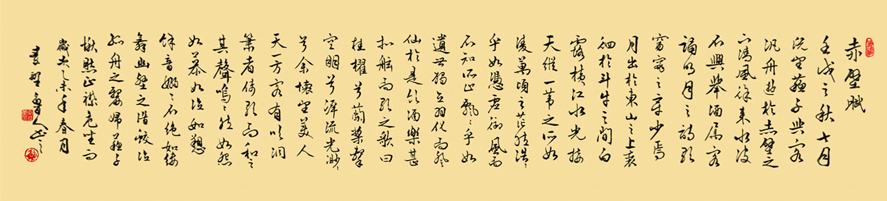 赤壁賦
壬戌之秋七月
既望蘇子與客
汎舟遊於赤壁之
下清風徐來水波
不興舉酒屬客
誦明月之詩歌
窈窕之章少焉
月出於東山之上裴
回於斗牛之間白
露橫江水光接
天縱一葦之所如
凌萬頃之茫然浩浩
乎如憑虛御風而
不知所止飄飄乎如
遺世獨立羽化而登
仙於是飲酒樂甚
扣舷而歌之歌曰
桂櫂兮蘭槳擊
空明兮泝流光渺渺
兮余懷望美人
天一方客有吹洞
簫者倚歌而和之
其聲嗚嗚然如怨
如慕如泣如愬
餘音嫋嫋不絕如縷
舞幽壑之潛蛟泣
孤舟之嫠婦蘇子
愀然正襟危坐而
歲次乙未年春月